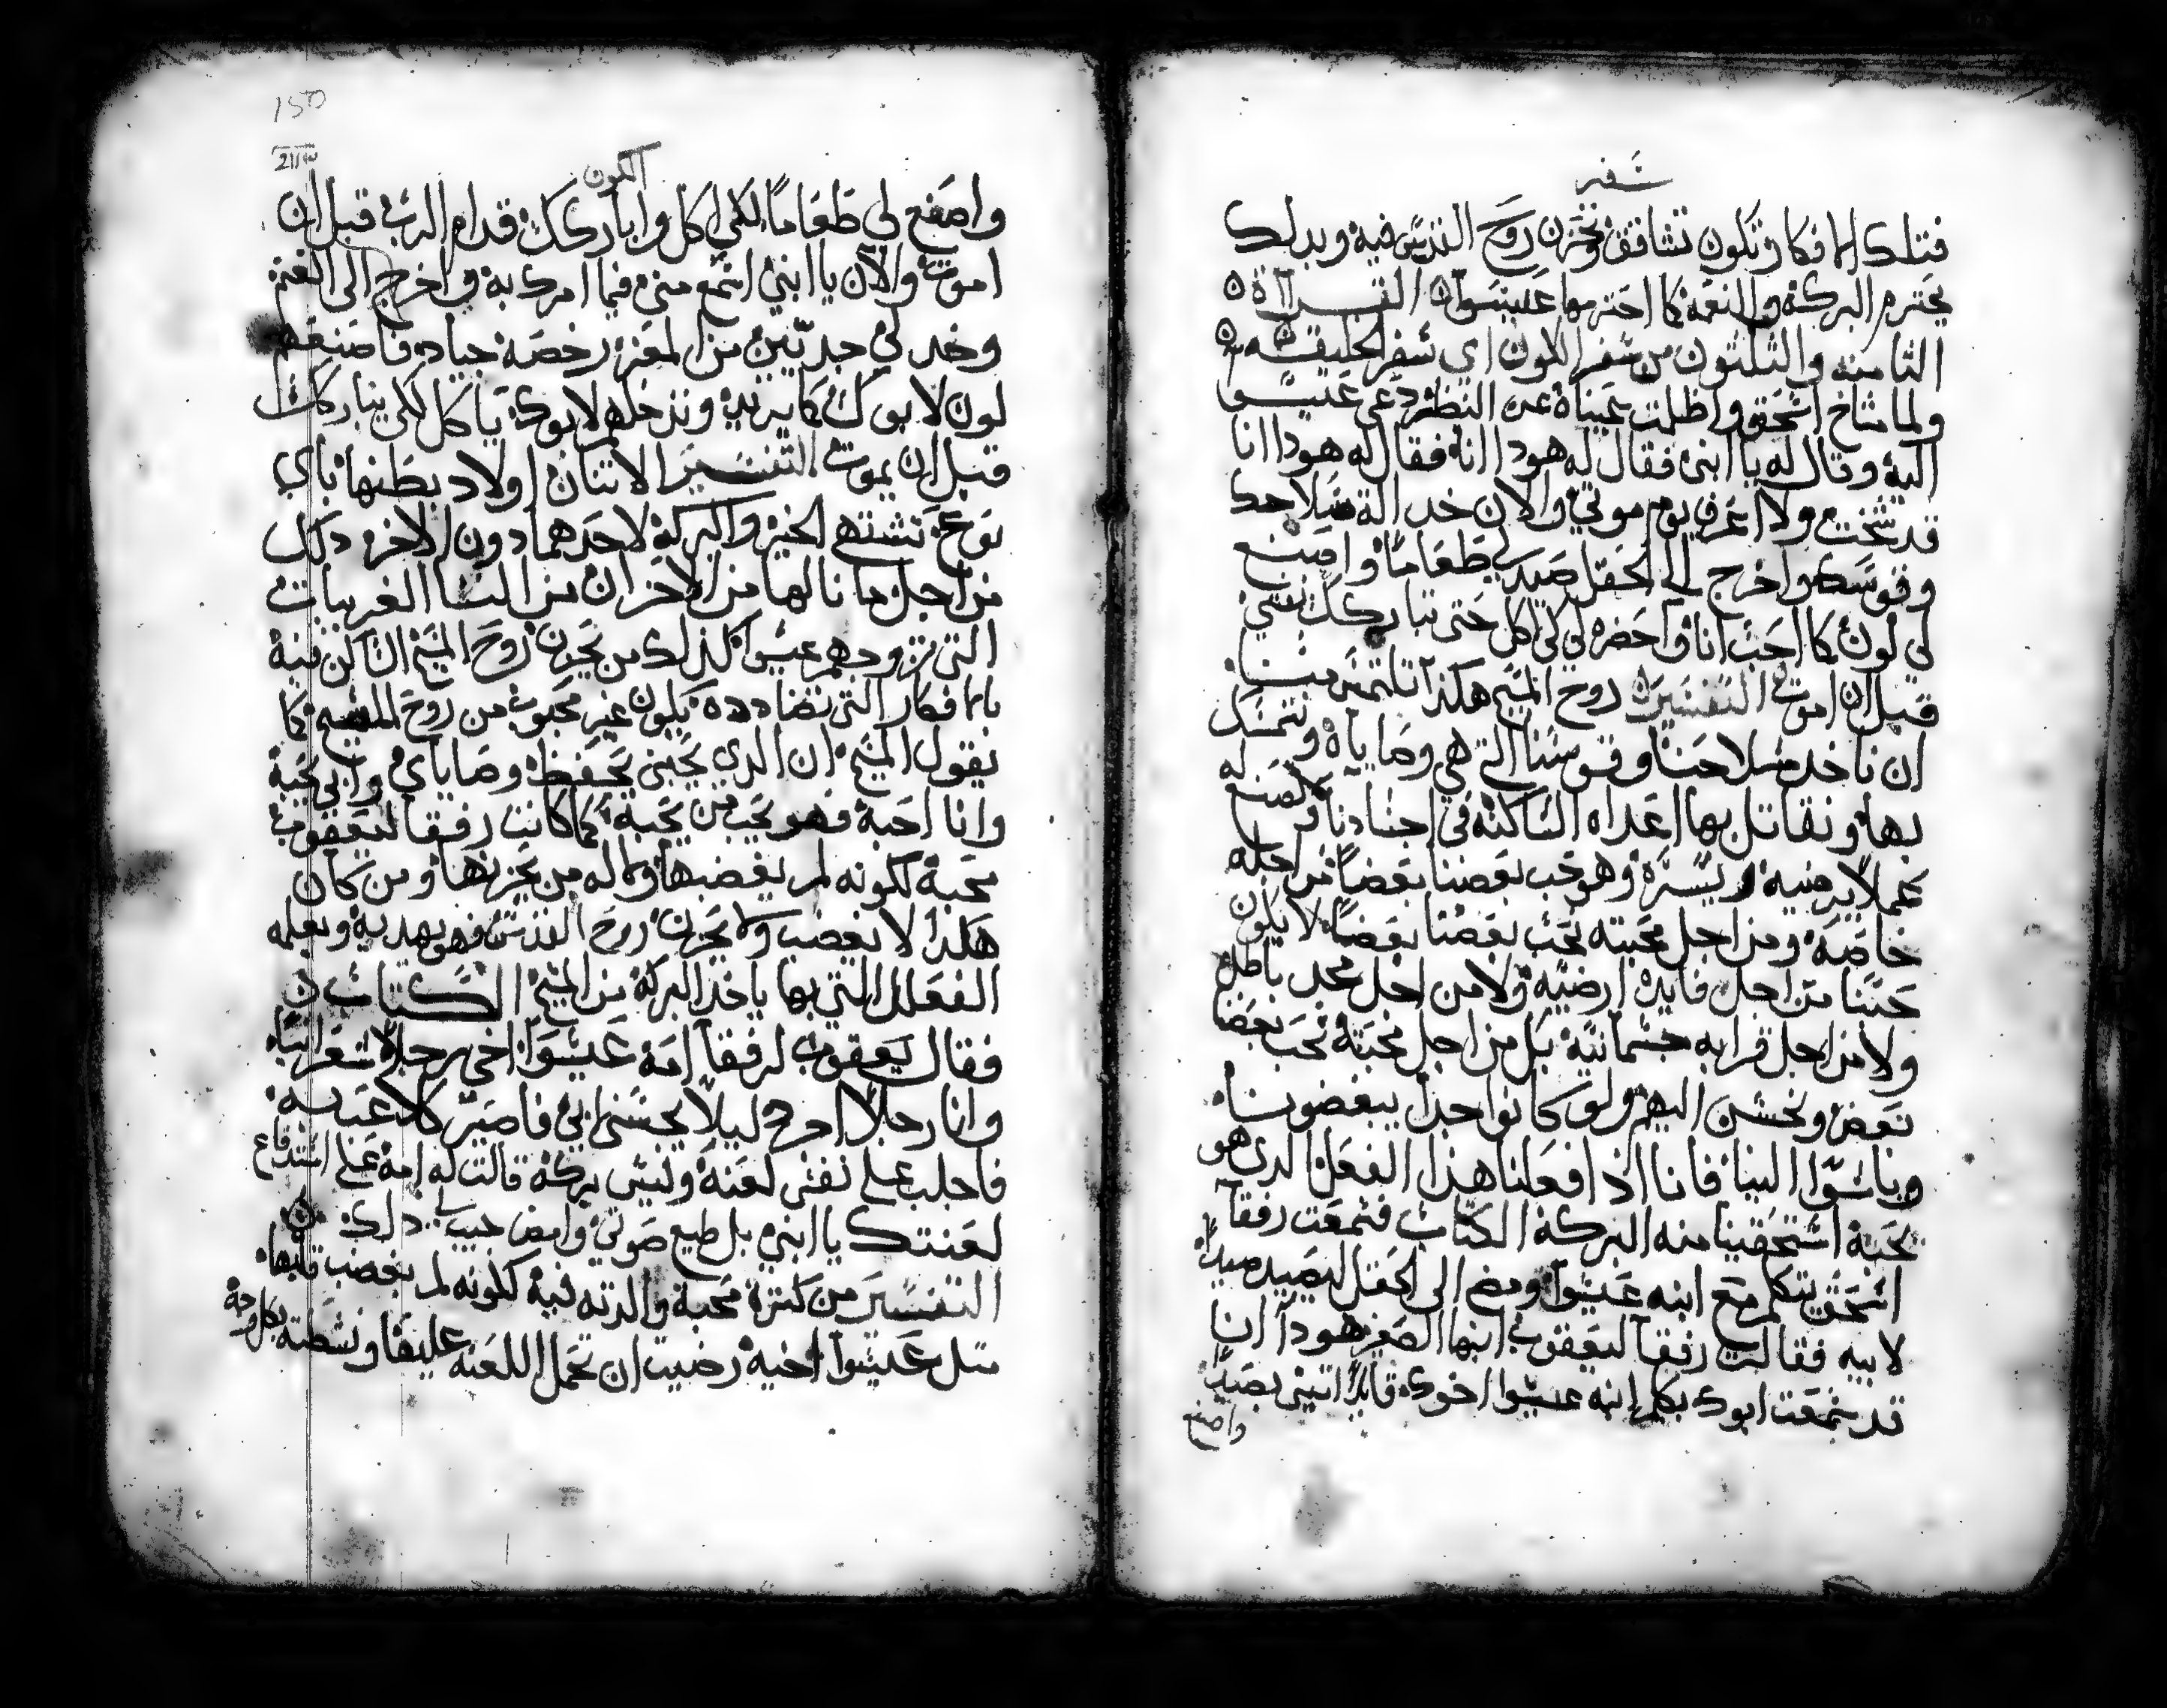 سفر
فتلك الافكار تكون تشاقق وتحزن روح القدس فيه وبدلك
يحترم البركه والنعمه كما احترمها عيسوا القراة
الثامنه والثلثون من سفر الكون اي سفر الخليقه
ولما شاخ اسحق واظلمت عيناه عن النظر دعى عيسوا
اليه وقال له يا ابني فقال له هودا انا فقال له هودا انا
قد شخت ولا اعرف يوم موتي والان خد الة سلاحك
وقوسك واخرج الى الحقل صيد لي طعاما واصنع
لي لون كما احب انا واحضره لي لكي اكل حتى تباركك نفسي
قبل ان اموت التفسير روح المسيح هكذا تلتمس منا
ان ناخد سلاحنا وقوسنا التي هي وصاياه ونتمسك
بها ونقاتل بها اعداه الساكنه في اجسادنا ونصنع له
عملا يرضيه ويسره وهو نحب بعضنا بعضا من اجله
خاصه ومن اجل محبته نحب بعضنا بعضا لا يكون
حبنا من اجل فايده ارضيه ولا من اجل مجد باطل
ولا من اجل قرابه جسمانيه بل من اجل محبته نحب بعضنا
بعض ونحسن اليهم ولو كانوا جدا يبغضونا
وياسوا الينا فاننا اذا فعلنا هذا الفعل الدي هو
محبة استحقينا منه البركة الكتاب فسمعت رفقا
اسحق يتكلم مع ابنه عيسوا ومضى الى الحقل ليصيد صيدا
لابيه فقالت رفقا ليعقوب ابنها الصغير هودا انا
قد سمعت ابوك يكلم ابنه عيسوا اخوك قايلا اتيني بصيد
واصنع
150
الكون
واصنع لي طعاما لكي اكل واباركك قدام الرب قبل ان
اموت والان يا ابني اسمع مني فيما امرك به واخرج الى الغنم
وخد لي جديين من المعز رخصه جياد فاصنعهم
لون لابوك كما يريد وتدخلهم لابوك ياكل لكي يباركك
قبل ان يموت التفسير الاتنان اولاد بطنها باي
نوع تشتهي الخير والبركة لاحدهما دون الاخر دلك
من اجل ما نالها من الاحزان من النسا الغريبات
التي تزوجهم عيسوا كذلك من يحزن روح المسيح الساكن فيه
بالافكار التي تضادده يكون غير محبوب من روح المسيح كما
يقول المسيح ان الدي يحبني يحفظ وصاياي وابي يحبه
وانا احبة فهو يحب من يحبه كما كانت رفقا ليعقوب
محبة لكونه لم يغضبها ولا له من يحزنها ومن كان
هكدا لا يغضب ولا يحزن روح القدس فهو يهديه ويعلمه
الفعل التي بها ياخد البركة من المسيح الكتاب
فقال يعقوب لرفقا امه عيسوا اخي رجلا شعرانيا
وانا رجلا اجرد ليلا يجسني ابي فاصير كلاعب به
فاجلب على نفسي لعنة وليس بركة قالت له امه علي استدفاع
لعنتك يا ابني بل طيع صوتي وامض جيب لي دلك
التفسير من كترة محبة والدته فيه لكونه لم يغضب قلبها
متل عيسوا اخيه رضيت ان تحمل اللعنه عليها ونشطته بكل وجه